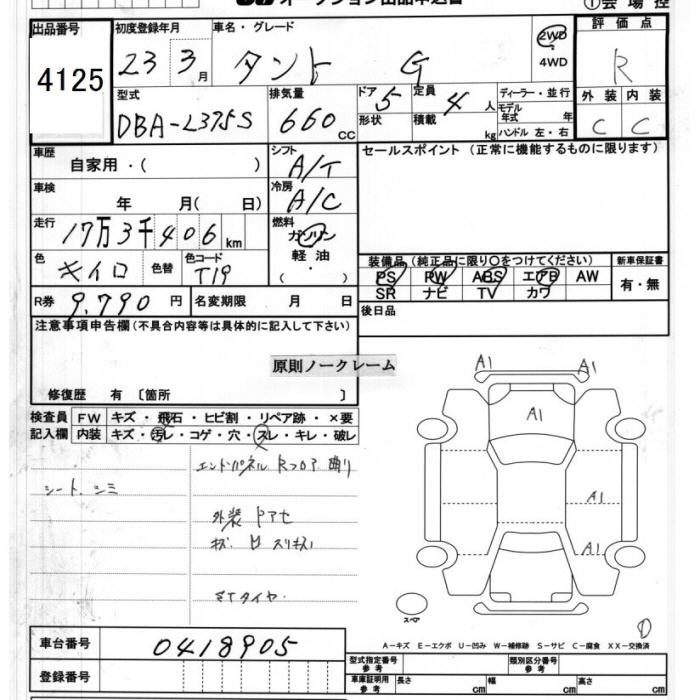 オークション出品申込書
①会場控
出品番号 初度登録年月 車名・グレード 評価点
4125 23 3月 タント G 2WD 4WD R
型式 排気量 ドア 定員 ディーラー・並行 外装 内装
DBA-L375S 660cc 5 形状 4人 積載 kg モデル年式 年 ハンドル 左・右 C C
車歴 自家用・( ) シフト A/T セールスポイント(正常に機能するものに限ります)
車検 年 月( 日) 冷房 A/C
走行 17万3千406km 燃料 ガソリン 軽油 ( ・ )
色 キイロ 色替 色コード T19
装備品(純正品に限り○をつけてください) 新車保証書
PS PW ABS エアB AW 有・無
SR ナビ TV カワ
R券 9,790円 名変期限 月 日
後日品
注意事項申告欄(不具合内容等は具体的に記入して下さい)
原則ノークレーム
修復歴 有〔箇所 〕
検査員 FW キズ・飛石・ヒビ割・リペア跡・×要
記入欄 内装 キズ・汚レ・コゲ・穴・スレ・キレ・破レ
エンドパネル Rフロア 曲り
シート シミ
外装 ドアセ
キズ 凹 スリキズ
タイヤ
A1 A1
A1
A1
A1
スペア
A-キズ E-エクボ U-凹み W-補修跡 S-サビ C-腐食 XX-交換済
車台番号 0418905
登録番号
型式指定番号 参考 類別区分番号 参考
車庫証明用 参考 長さ cm 幅 cm 高さ cm